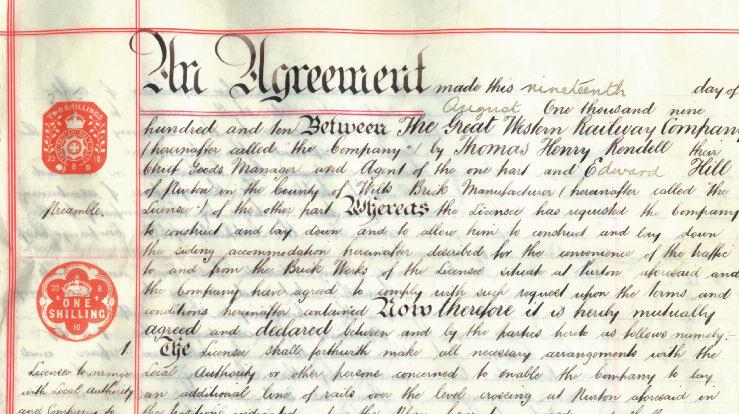 An Agreement made this nineteenth day of
August One thousand nine
hundred and ten Between The Great Western Railway Company
(hereinafter called "the Company") by Thomas Henry Rendell their
Chief Goods Manager and Agent of the one part and Edward Hill
of Purton in the County of Wilts Brick Manufacturer (hereinafter called "the
Licensee") of the other part Whereas the Licensee has requested the Company
to construct and lay down and to allow him to construct and lay down
the siding accommodation hereinafter described for the convenience of the traffic
to and from the Brick Works of the Licensee situate at Purton aforesaid and
the Company have agreed to comply with such request upon the terms and
conditions hereinafter contained Now therefore it is hereby mutually
agreed and declared between and by the parties hereto as follows namely:-
1. The Licensee shall forthwith make all necessary arrangements with the
Local Authority or other persons concerned to enable the Company to lay
an additional line of rails over the level crossing at Purton aforesaid in
TWO SHILLINGS
23 10
8
Preamble.
23 8
ONE
SHILLING
10
Licensee to arrange
with Local Authority
and Company to